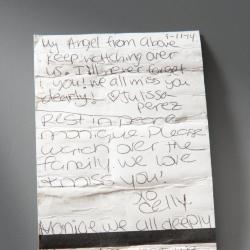 My Angel from above 9-11-14
keep watching over
us. I'll never forget
you! we all miss you
dearly! ♡ Julissa
Perez
Rest in peace
monique. Please
watch over the
family we love
& miss you!
XO
Celly.
Monige we all deeply